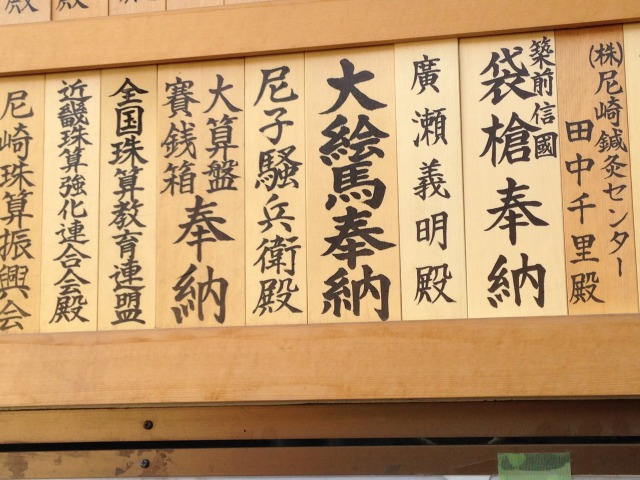 (株)尼崎鍼灸センター
田中千里殿
築前信國
袋槍奉納
廣瀬義明殿
大絵馬奉納
尼子騒兵衛殿
大算盤
賽銭箱
奉納
全国珠算教育連盟
近畿珠算強化連合会殿
尼崎珠算振興会
殿